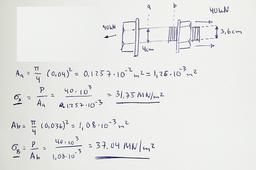 a b
40kN
40kN
3,6cm
4cm
Aa = π/4 (0,04)² = 0,1257·10⁻² m² = 1,26·10⁻³ m²
σa = P/Aa = 40·10³/1,257·10⁻³ = 31,75 MN/m²
Ab = π/4 (0,036)² = 1,08·10⁻³ m²
σB = P/Ab = 40·10³/1,08·10⁻³ = 37,04 MN/m²